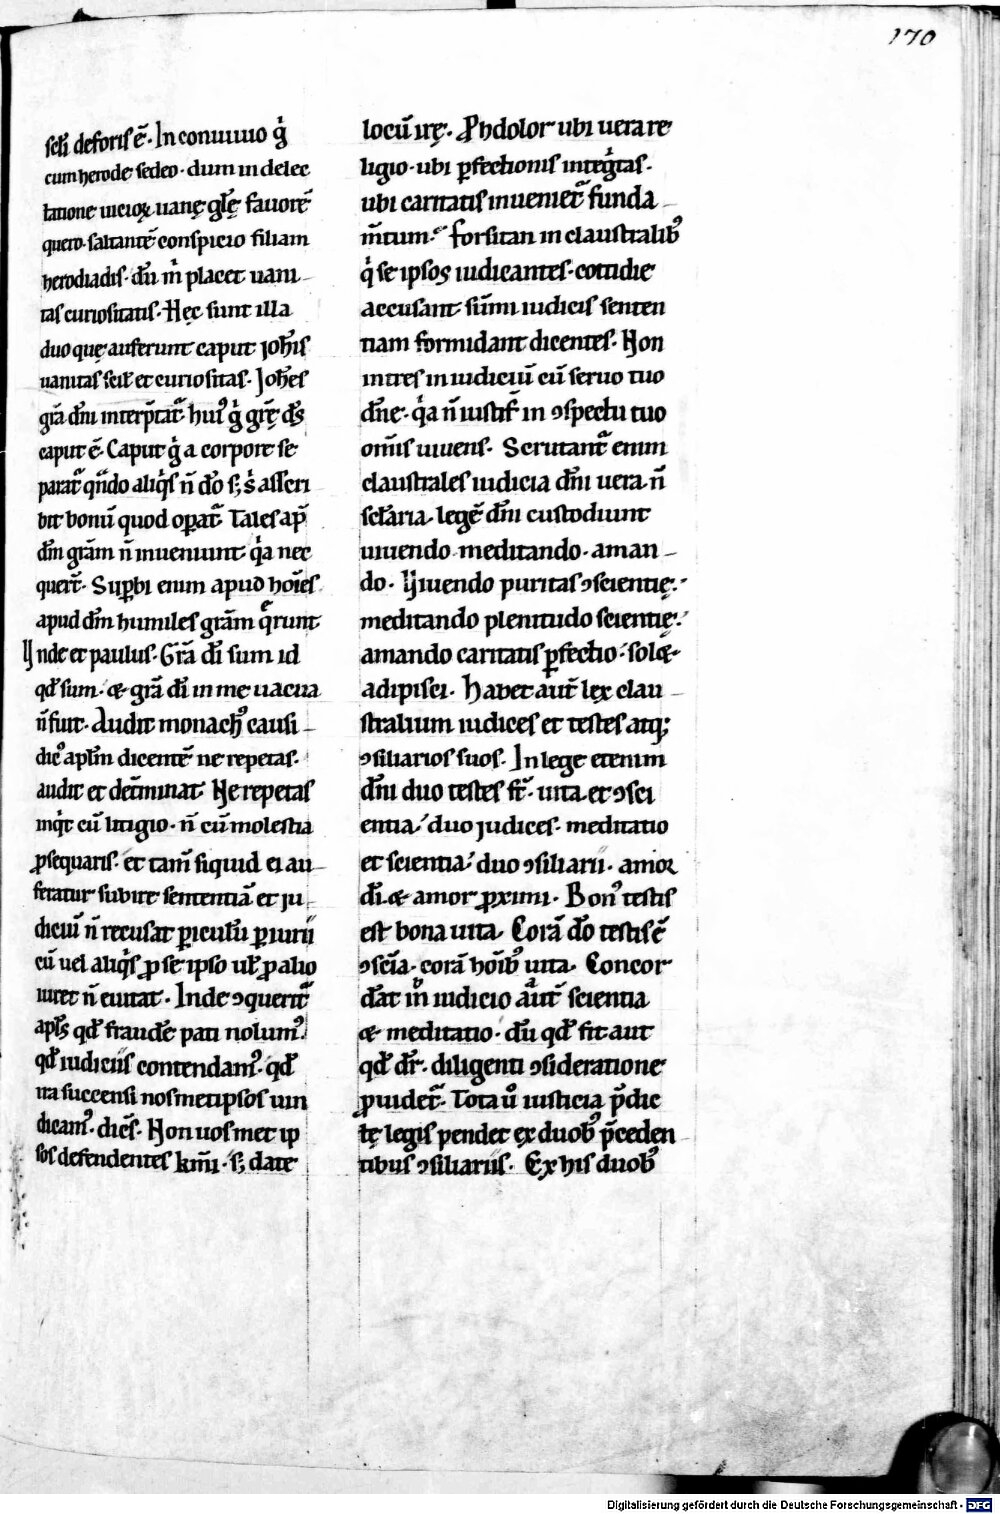 170
scl̄i deforis ē. In conuiuio g̊
cum herode sedeo. dum in delec
tatione uicioꝝ uanę gl̄ę fauorē
quero. saltantē conspicio filiam
herodiadis. dū m̊ placet uani
tas curiositatis. Hęc sunt illa
duo quę auferunt caput ioh̄is
uanitas scil̄ et curiositas. Joh̄es
gr̄a dn̄i interp̄tat̄. huiꝰ g̊ gr̄ę d̄s
caput ē. Caput g̊ a corpore se
parat̄ qn̄do aliq̊s n̄ dō s; s̊ asscri
bit bonū quod oꝑat̄. Tales ap̄
dn̄m gr̄am n̄ inueniunt. q̊a nec
quer̄t. Suꝑbi enim apud hoīes
apud dn̄m humiles gr̄am q̄runt
Vnde et paulus. Gr̄a dī sum id
qd̄ sum. & gr̄a dī in me uacua
n̄ fuit. Audit monachꝰ causi
dicꝰ aplm̄ dicentē ne repetas.
audit et det̄minat. Ne repetas
inq̊t cū litigio. n̄ cū molestia
ꝓsequaris. et tam̄ siquid ei au
feratur subire sententiā et iu
diciū n̄ recusat ꝑiculū ꝑiurii
cū uel aliq̊s ꝓ se ipso ul̄ ꝓ alio
iuret n̄ euitat. Inde ↄquerit̄
apl̄s qd̄ fraudē pati nolumꝰ.
qd̄ iudiciis contendamꝰ. qd̄
ita succensi nosmetipsos uin
dicamꝰ. dicēs. Non uosmet ip
sos defendentes km̄i. s; date
locū irę. Proh dolor ubi uera re
ligio. ubi ꝑfectionis integ̊tas.
ubi caritatis inueniet̄ funda
m̄tum. forsitan in claustralibꝰ
q̊ se ipsos iudicantes. cottidie
accusant. sūmi iudicis senten
tiam formidant dicentes. Non
intres in iudiciū cū seruo tuo
dn̄e. q̊a n̄ iustif̄ in ↄspectu tuo
om̄is uiuens. Scrutant̄ enim
claustrales iudicia dn̄i uera. n̄
sc̄laria. legē dn̄i custodiunt
uiuendo. meditando. aman
do. Viuendo puritas ↄscientię.
meditando plenitudo scientię.
amando caritatis ꝑfectio. sol&
adipisci. Habet aut̄ lex clau
stralium iudices et testes atq;
ↄsiliarios suos. In lege etenim
dn̄i duo testes st̄. uita. et ↄsci
entia. duo iudices. meditatio
et scientia. duo ↄsiliarii. amor
dī. & amor ꝓximi. Bonꝰ testis
est bona uita. Corā dō testis ē
ↄscīa. corā hoībꝰ uita. Concor
dat in iudicio aut̄ scientia
& meditatio. dū qd̄ fit aut
qd̄ dr̄. diligenti ↄsideratione
ꝓuidet̄. Tota ů iusticia p̄dic
tę legis pendet ex duobꝰ p̄ceden
tibus ↄsiliariis. Ex his duobꝰ
Digitalisierung gefördert durch die Deutsche Forschungsgemeinschaft - DFG